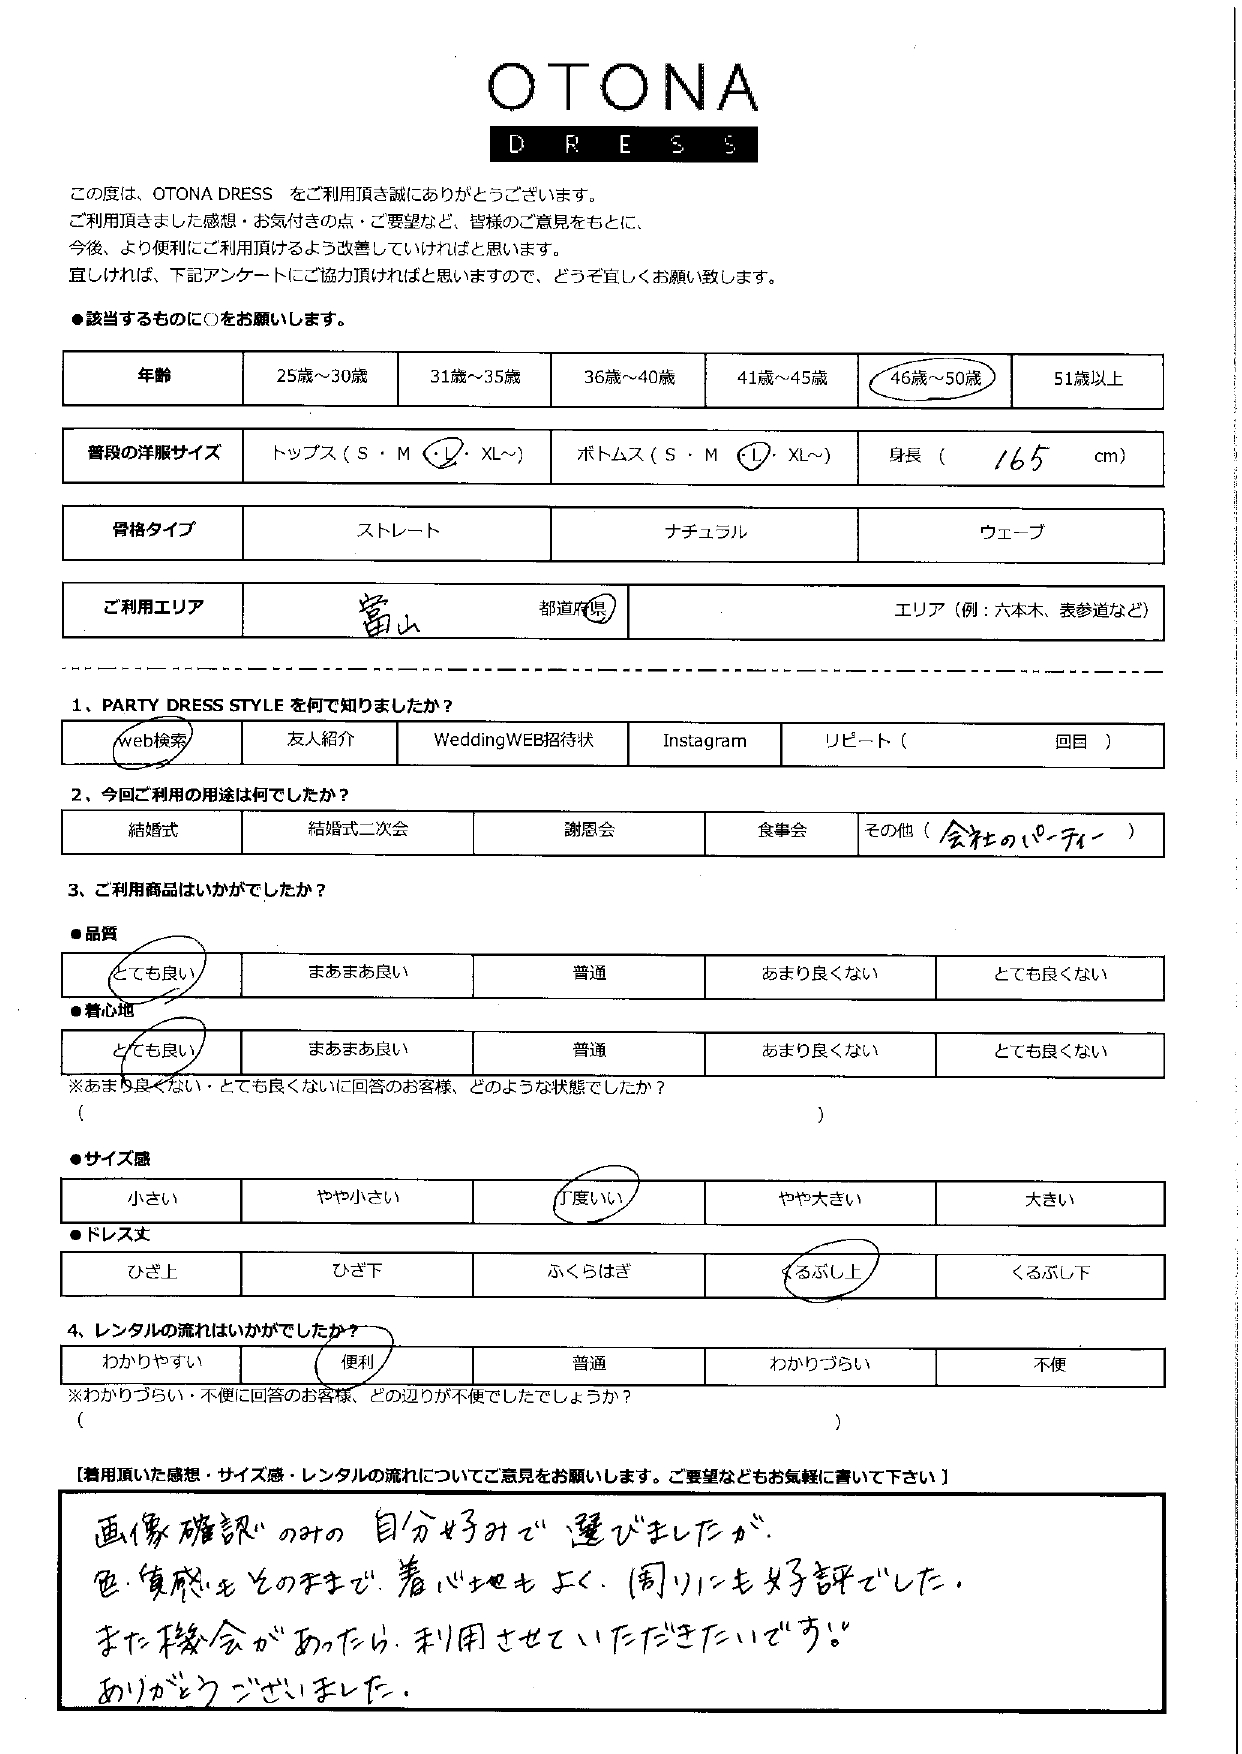 OTONA
DRESS
この度は、OTONA DRESS をご利用頂き誠にありがとうございます。
ご利用頂きました感想・お気付きの点・ご要望など、皆様のご意見をもとに、
今後、より便利にご利用頂けるよう改善していければと思います。
宜しければ、下記アンケートにご協力頂ければと思いますので、どうぞ宜しくお願い致します。
●該当するものに○をお願いします。
年齢 25歳～30歳 31歳～35歳 36歳～40歳 41歳～45歳 46歳～50歳 51歳以上
普段の洋服サイズ トップス ( S ・ M ・L・ XL～) ボトムス ( S ・ M ・L・ XL～) 身長 ( 165 cm)
骨格タイプ ストレート ナチュラル ウェーブ
ご利用エリア 富山 都道府県 エリア（例：六本木、表参道など）
1、PARTY DRESS STYLE を何で知りましたか？
web検索 友人紹介 WeddingWEB招待状 Instagram リピート（ 回目 ）
2、今回ご利用の用途は何でしたか？
結婚式 結婚式二次会 謝恩会 食事会 その他（ 会社のパーティー ）
3、ご利用商品はいかがでしたか？
●品質
とても良い まあまあ良い 普通 あまり良くない とても良くない
●着心地
とても良い まあまあ良い 普通 あまり良くない とても良くない
※あまり良くない・とても良くないに回答のお客様、どのような状態でしたか？
( )
●サイズ感
小さい やや小さい 丁度いい やや大きい 大きい
●ドレス丈
ひざ上 ひざ下 ふくらはぎ くるぶし上 くるぶし下
4、レンタルの流れはいかがでしたか？
わかりやすい 便利 普通 わかりづらい 不便
※わかりづらい・不便に回答のお客様、どの辺りが不便でしたでしょうか？
( )
【着用頂いた感想・サイズ感・レンタルの流れについてご意見をお願いします。ご要望などもお気軽に書いて下さい】
画像確認のみの 自分好みで 選びましたが、
色・質感もそのままで、着心地もよく、周りにも好評でした。
また機会があったら、利用させていただきたいです!!
ありがとうございました。